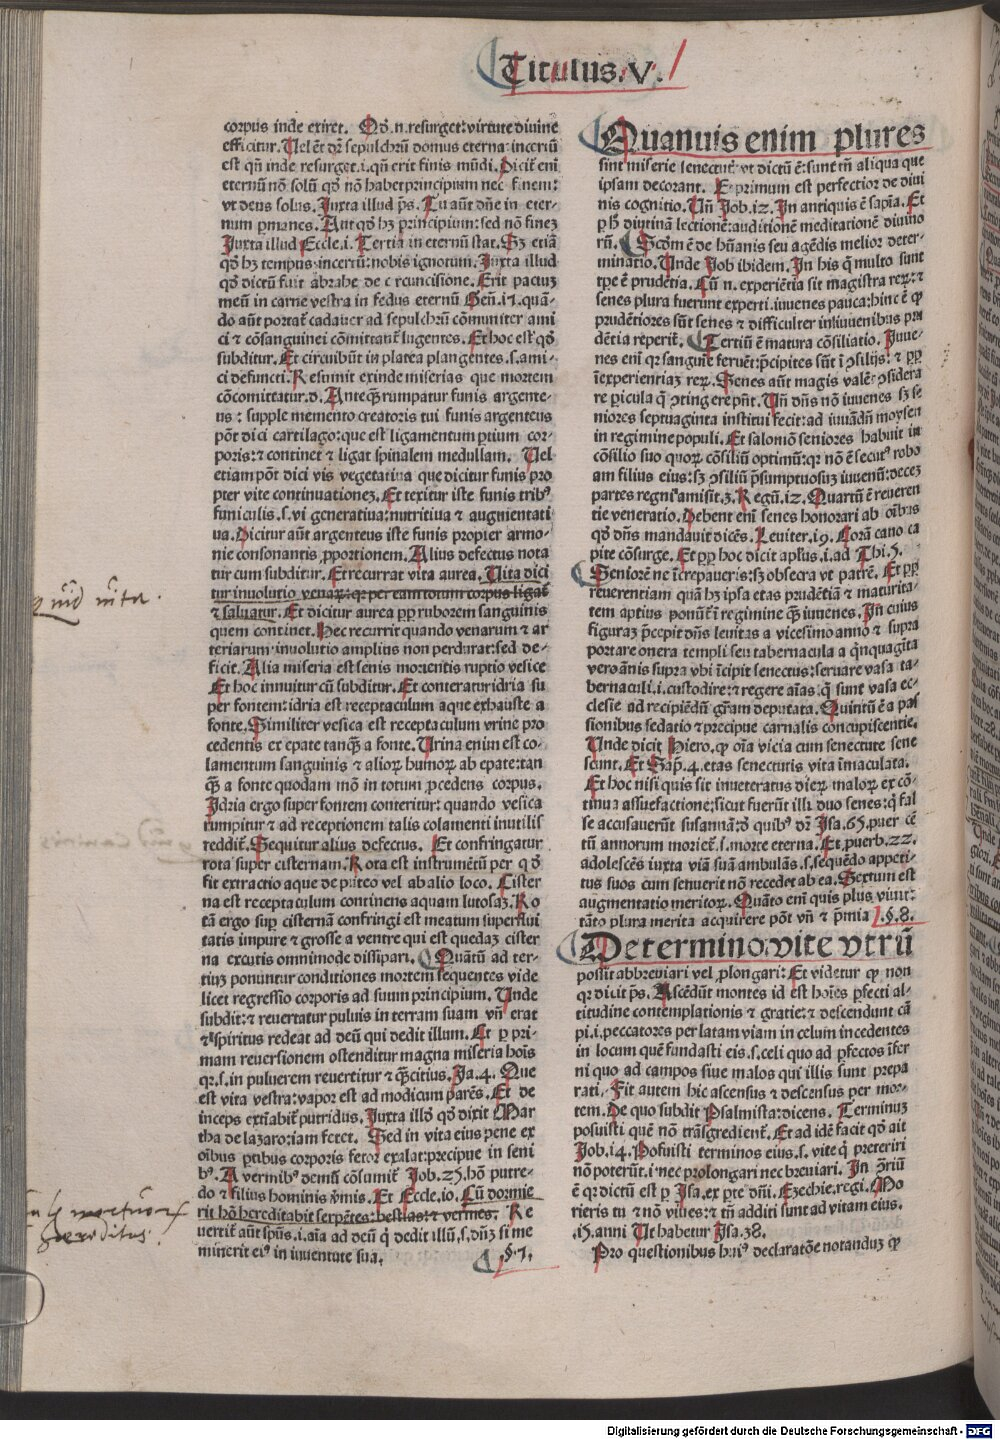 Titulus. V.
corpus inde exiret. Qđ.n.resurget: virtute diuine
efficitur. Uel ēt dr̄ sepulchrū domus eterna: incertū
est qn̄ inde resurget.i.qn̄ erit finis mūdi. Dicit eni
eternū nō solū qđ nō habet principium nec finem:
vt deus solus. Juxta illud ps̄. Tu aūt dn̄e in eter-
num ꝑmanes. Aut qđ hꝫ principium: sed nō fineꝫ
Juxta illud Eccle.i. Terra in eternū stat. Sꝫ etiā
qđ hꝫ tempus incertū: nobis ignotum. Juxta illud
qđ dictū fuit abrahe de circuncisione. Erit pactuꝫ
meū in carne vestra in fedus eternū Gen̄.17. quā-
do aūt portat᷒ cadauer ad sepulchrū cōmuniter ami
ci ⁊ cōsanguinei cōmittant᷒ lugentes. Et hoc est qđ
subditur. Et circuibūt in platea plangentes.s.ami-
ci defuncti. Resumit exinde miserias que mortem
cōcomittatur.d. Anteq̄ꝫ rumpatur funis argente-
us: supple memento creatoris tui funis argenteus
pōt dici cartilago: que est ligamentum ꝑtium cor-
poris: ⁊ continet ⁊ ligat spinalem medullam. Uel
etiam pōt dici vis vegetatiua que dicitur funis pro
pter vite continuationeꝫ. Et texitur iste funis tribꝰ
funiculis.s.vi generatiua: nutritiua ⁊ augmentati
ua. Dicitur aūt argenteus iste funis propter armo-
nie consonantis ꝓportionem. Alius defectus nota
tur cum subditur. Et recurrat vita aurea. Uita dici
tur inuolutio venaꝝ: qꝛ per eam totum corpus ligat᷒
⁊ saluatur. Et dicitur aurea ꝓpꝓ ruborem sanguinis
quem continet. Hec recurrit quando venarum ⁊ ar
teriarum inuolutio amplius non perdurat: sed de-
ficit. Alia miseria est senis morientis ruptio vesice
Et hoc innuitur cū subditur. Et conteratur idria su
per fontem: idria est receptaculum aque exhauste a
fonte. Similiter vesica est receptaculum vrine pro
cedentis ex epate tanq̄ꝫ a fonte. Urina enim est co-
lamentum sanguinis ⁊ alioꝝ humoꝝ ab epate: tan
q̄ꝫ a fonte quodam mō in totum ꝓcedens corpus.
Jdria ergo super fontem conteritur: quando vesica
rumpitur ⁊ ad receptionem talis colamenti inutilis
reddit᷒. Sequitur alius defectus. Et confringatur
rota super cisternam. Rota est instrumētū per qđ
fit extractio aque de puteo vel ab alio loco. Cister
na est receptaculum continens aquam lutosaꝫ. Ro
tā ergo suꝑ cisternā confringi est meatum superflui
tatis impure ⁊ grosse a ventre qui est quedaꝫ cister
na excutis omnimode dissipari. Quātū ad ter-
tiuꝫ ponuntur conditiones mortem sequentes vide
licet regressio corporis ad suum principium. Unde
subdit: ⁊ reuertatur puluis in terram suam vn̄ erat
⁊ spiritus redeat ad deū qui dedit illum. Et ꝑ pri-
mam reuersionem ostenditur magna miseria hois
qꝛ.s.in puluerem reuertitur ⁊ q̄ꝫcitius. Ja.4. Que
est vita vestra: vapor est ad modicum parēs. Et de
inceps extabit᷒ putridus. Juxta illđ qđ dixit Mar
tha de lazaro: iam fetet. Sed in vita eius pene ex
oībus ꝑtibus corporis fetor exalat: precipue in seni
bꝰ. A vermibꝰ demū cōsumit᷒ Job.25. hō putre-
do ⁊ filius hominis v̄mis. Et Eccle.10. Cū dormie
rit hō hereditabit serpētes: bestias: ⁊ vermes. Re
uertit᷒ aūt spūs.i.aīa ad deū q̄ dedit illū.s.dūꝫ si me
minerit eiꝰ in iuuentute sua. §.7.
Quanuis enim plures
sint miserie senectut᷒ vt dictū ē: sunt tn̄ aliqua que
ipsam decorant. Et primum est perfectior de diui
nis cognitio. Un̄ Job.12. In antiquis ē sapīa. Et
ꝑ ħ diutinā lectionē: auditionē meditationē diuino
rū. Scđm ē de hūanis seu agēdis melior deter-
minatio. Unde Job ibidem. In his q̄ multo sunt
tꝑe ē prudētia. Cū.n. experiētia sit magistra reꝝ: ⁊
senes plura fuerunt experti. iuuenes pauca: hinc ē ꝙ
prudētiores sūt senes ⁊ difficulter in iuuenibus pru
dētia reperit᷒. Tertiū ē matura cōsiliatio. Juue-
nes eni qꝛ sanguīe feruēt: p̄cipites sūt ī ꝯsilijs: ⁊ ꝓpꝓ
īexperientiaꝫ reꝝ. Senes aūt magis valēt ꝯsidera
re ꝑicula q̄ ꝯtingere pn̄t. Un̄ dn̄s nō iuuenes sꝫ se
niores septuaginta institui fecit: ad iuuādū moysen
in regimine populi. Et salomō seniores habuit in
cōsilio suo quoꝝ cōsiliū optimū: qꝛ nō ē secutꝰ robo
am filius eius: sꝫ ꝯsiliū p̄sumptuosuꝫ iuuenū: deceꝫ
partes regni amisit.3. Regū.12. Quartū ē reueren
tie veneratio. Debent eni senes honorari ab oībus
qđ dn̄s mandauit dicēs. Leuiter.19. Corā cano ca
pite cōsurge. Et ꝓpꝓ hoc dicit apl̄us.i.ad Thi.5.
Seniorē ne īcrepaueris: sꝫ obsecra vt patrē. Et ꝓpꝓ
reuerentiam quā hꝫ ipsa etas prudētiā ⁊ maturita-
tem aptius ponūt᷒ ī regimine q̄ꝫ iuuenes. In cuius
figuraꝫ p̄cepit dn̄s leuitas a vicesimo anno ⁊ supra
portare onera templi seu tabernacula a qn̄quagīta
vero ānis supra vbi īcipit senectus: seruare vasa ta-
bernaculi.i.custodire: ⁊ regere aīas: q̄ sunt vasa ec-
clesie ad recipiēdū grām deputata. Quintū ē a pas
sionibus sedatio ⁊ precipue carnalis concupiscentie.
Unde dicit Hiero. ꝙ oīa vicia cum senectute sene
scunt. Et Sap̄.4. etas senectutis vita īmaculata.
Et hoc nisi quis sit inueteratus dieꝝ maloꝝ ex cō-
tinua assuefactione: sicut fuerūt illi duo senes: q̄ fal
se accusauerūt susannā: đ quibꝰ dr̄ Isa.65. puer cē
tū annorum moriet᷒.s.morte eterna. Et ꝓuerb.22.
adolescēs iuxta viā suā ambulās.s.sequēdo appeti-
tus suos cum senuerit nō recedet ab ea. Sextum est
augmentatio meritoꝝ. Quāto eni quis plus viuit:
tāto plura merita acquirere pōt vn̄ ⁊ p̄mia .§.8.
Determino. vite vtrū
possit abbreuiari vel ꝓlongari: Et videtur ꝙ non
qꝛ dicit ps̄. Ascēdūt montes id est hoīes ꝑfecti al-
titudine contemplationis ⁊ gratie: ⁊ descendunt cā
pi.i.peccatores per latam viam in celum incedentes
in locum quē fundasti eis.s.celi quo ad ꝑfectos īfer
ni quo ad campos siue malos qui illis sunt prepa
rati. Fit autem hic ascensus ⁊ descensus per mor-
tem. De quo subdit Psalmista: dicens. Terminuꝫ
posuisti quē nō trāsgredient᷒. Et ad idē facit qđ ait
Job.14. Posuisti terminos eius.s.vite q̄ preteriri
nō poterūt.i.nec prolongari nec breuiari. In ꝓ̄riū
ē qꝛ dictū est ꝑ Isa. ex ꝑte dn̄i. Ezechie. regi. Mo
rieris tu ⁊ nō viues: ⁊ tn̄ additi sunt ad vitam eius.
.15. anni Ut habetur Isa.38.
Pro questionibus huiꝰ declaratōe notandum ꝙ
quid vita.
hereditas.
Digitalisierung gefördert durch die Deutsche Forschungsgemeinschaft - DFG